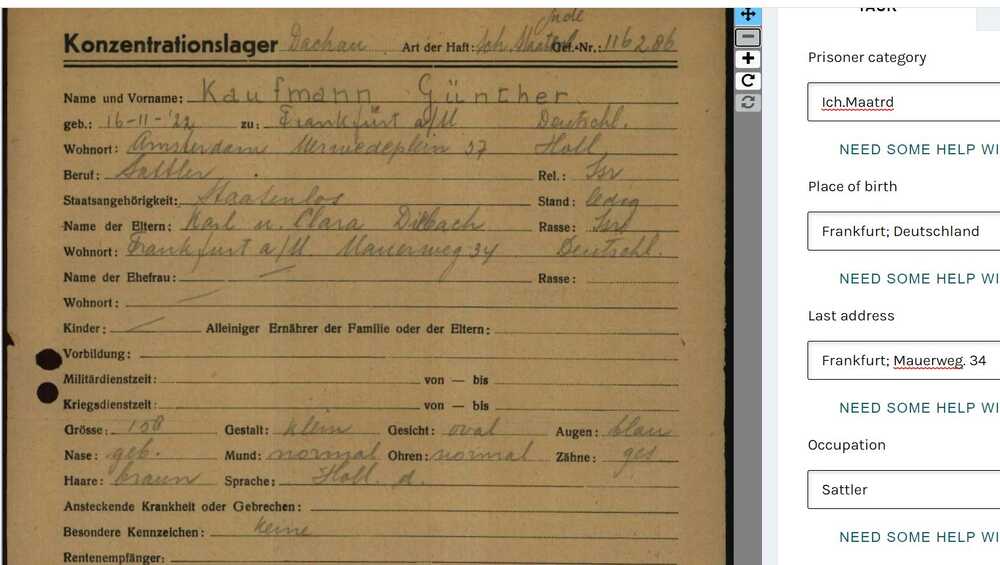 Jude
Konzentrationslager Dachau Art der Haft: Sch. Gef.-Nr.: 116286
Name und Vorname: Kaufmann Günther
geb.: 16-11-'22 zu: Frankfurt a/M Deutschl.
Wohnort: Amsterdam Merwedeplein 37 Holl.
Beruf: Sattler Rel.: Isr
Staatsangehörigkeit: Staatenlos Stand: ledig
Name der Eltern: Karl u. Clara Rasse: Isr
Wohnort: Frankfurt a/M Mauerweg 34 Deutschl.
Name der Ehefrau: Rasse:
Wohnort:
Kinder: Alleiniger Ernährer der Familie oder der Eltern:
Vorbildung:
Militärdienstzeit: von — bis
Kriegsdienstzeit: von — bis
Grösse: 158 Gestalt: klein Gesicht: oval Augen: blau
Nase: geb. Mund: normal Ohren: normal Zähne: ges
Haare: braun Sprache: Holl. d.
Ansteckende Krankheit oder Gebrechen:
Besondere Kennzeichen: keine
Rentenempfänger:
TASK
Prisoner category
Ich.Maatrd
NEED SOME HELP WI
Place of birth
Frankfurt; Deutschland
NEED SOME HELP WI
Last address
Frankfurt; Mauerweg. 34
NEED SOME HELP WI
Occupation
Sattler
NEED SOME HELP WI